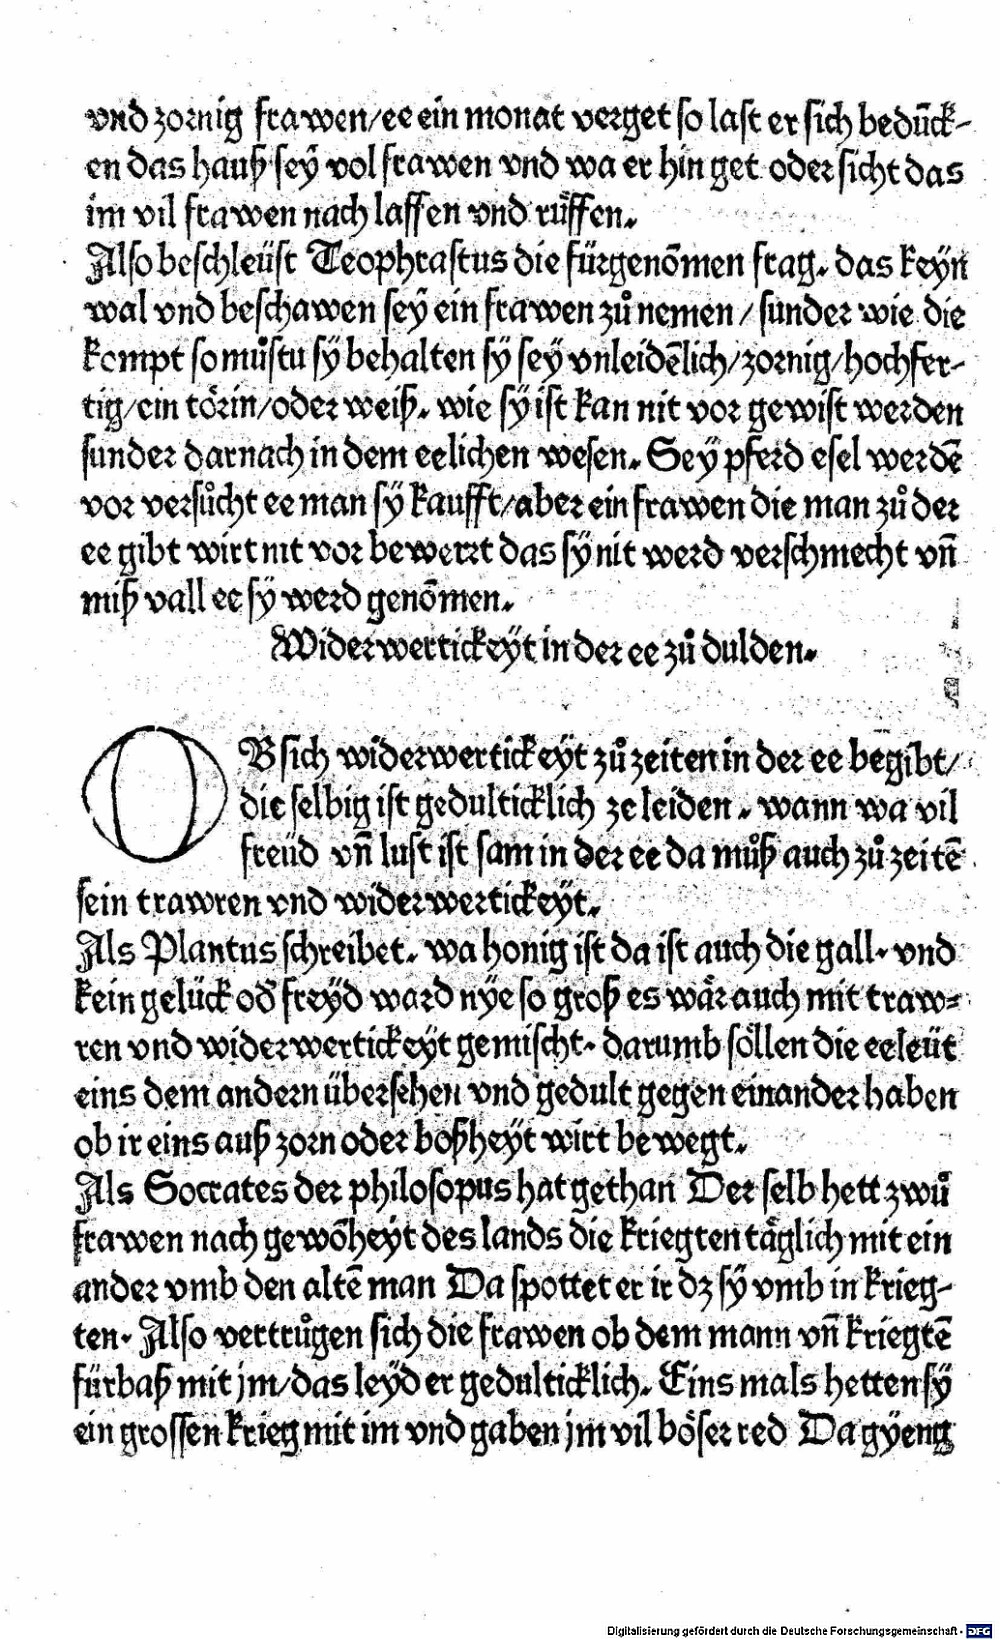 vnd zornig frawen/ee ein monat verget so last er sich bedūck-
en das hauß sey̆ vol frawen vnd wa er hin get oder sicht das
im vil frawen nach laffen vnd rüffen.
Also beschleüst Teophrastus die fürgenōmen frag. das keyn
wal vnd beschawen sey̆ ein frawen zů nemen/ sunder wie die
kompt so můstu sÿ behalten sÿ sey vnleidēlich/zornig/hochfer-
tig/ein törin/oder weiß. wie sÿ ist kan nit vor gewist werden
sunder darnach in dem eelichen wesen. Sey pferd esel werdē
vor versůcht ee man sÿ kaufft/aber ein frawen die man zů der
ee gibt wirt nit vor bewerrt das sÿ nit werd verschmecht vn̄
miß vall ee sÿ werd genōmen.
Widerwertickeyt in der ee zů dulden.
OB sich widerwertickeyt zů zeiten in der ee begibt/
die selbig ist gedulticklich ze leiden. wann wa vil
freüd vn̄ lust ist sam in der ee da můß auch zů zeitē
sein trawren vnd widerwertickeyt.
Als Plantus schreibet. wa honig ist da ist auch die gall. vnd
kein gelück od̕ freyd ward nye so groß es wär auch mit traw-
ren vnd widerwertickeyt gemischt. darumb söllen die eeleüt
eins dem andern übersehen vnd gedult gegen einander haben
ob ir eins auß zorn oder boßheyt wirt bewegt.
Als Socrates der philosopus hat gethan Der selb hett zwů
frawen nach gewōheyt des lands die kriegten täglich mit ein
ander vmb den altē man Da spottet er ir dz sÿ vmb in krieg-
ten. Also vertrůgen sich die frawen ob dem mann vn̄ kriegtē
fürbaß mit jm/das leyd er gedulticklich. Eins mals hetten sÿ
ein grossen krieg mit im vnd gaben jm vil böser red Da gyeng
Digitalisierung gefördert durch die Deutsche Forschungsgemeinschaft - DFG